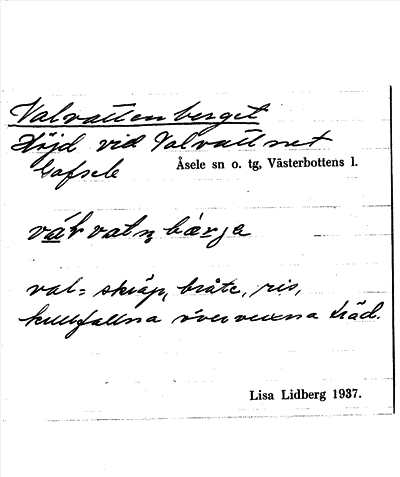 Valvattenberget
Höjd vid Valvattnet
Gafsele
Åsele sn o. tg, Västerbottens l.
val = skräp, bråte, ris,
kullfallna övervuxna träd.
Lisa Lidberg 1937.